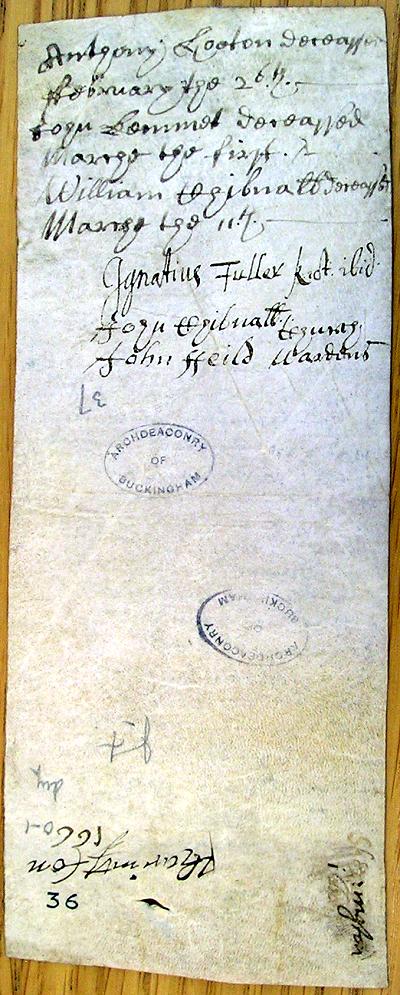 Anthony Cooton deceassed
ffebruary the 26th.
John Lemmet deceassed
Marche the first.
William Chibnall deceassd
Marche the 11th.
Ignatius Fuller Rect. ibid.
John Chibnall Church
John ffeild Wardens
37
ARCHDEACONRY
OF
BUCKINGHAM
ARCHDEACONRY
OF
BUCKINGHAM
1660-1
Sharington
36